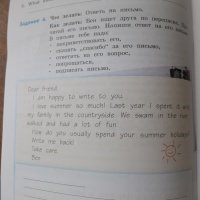 3. What
Задание 4. Что делать: Ответь на письмо.
Как делать: Бен ищет друга по переписке. Прочитай его письмо. Напиши ответ на его письмо.
В письме тебе надо:
- поприветствовать его,
- сказать „спасибо" за его письмо,
- ответить на его вопрос,
- попрощаться,
- подписать письмо.
Dear friend,
I am happy to write to you.
I love summer so much! Last year I spent it with
my family in the countryside. We swam in the river,
walked and had a lot of fun.
How do you usually spend your summer holidays?
Write me back!
Take care,
Ben